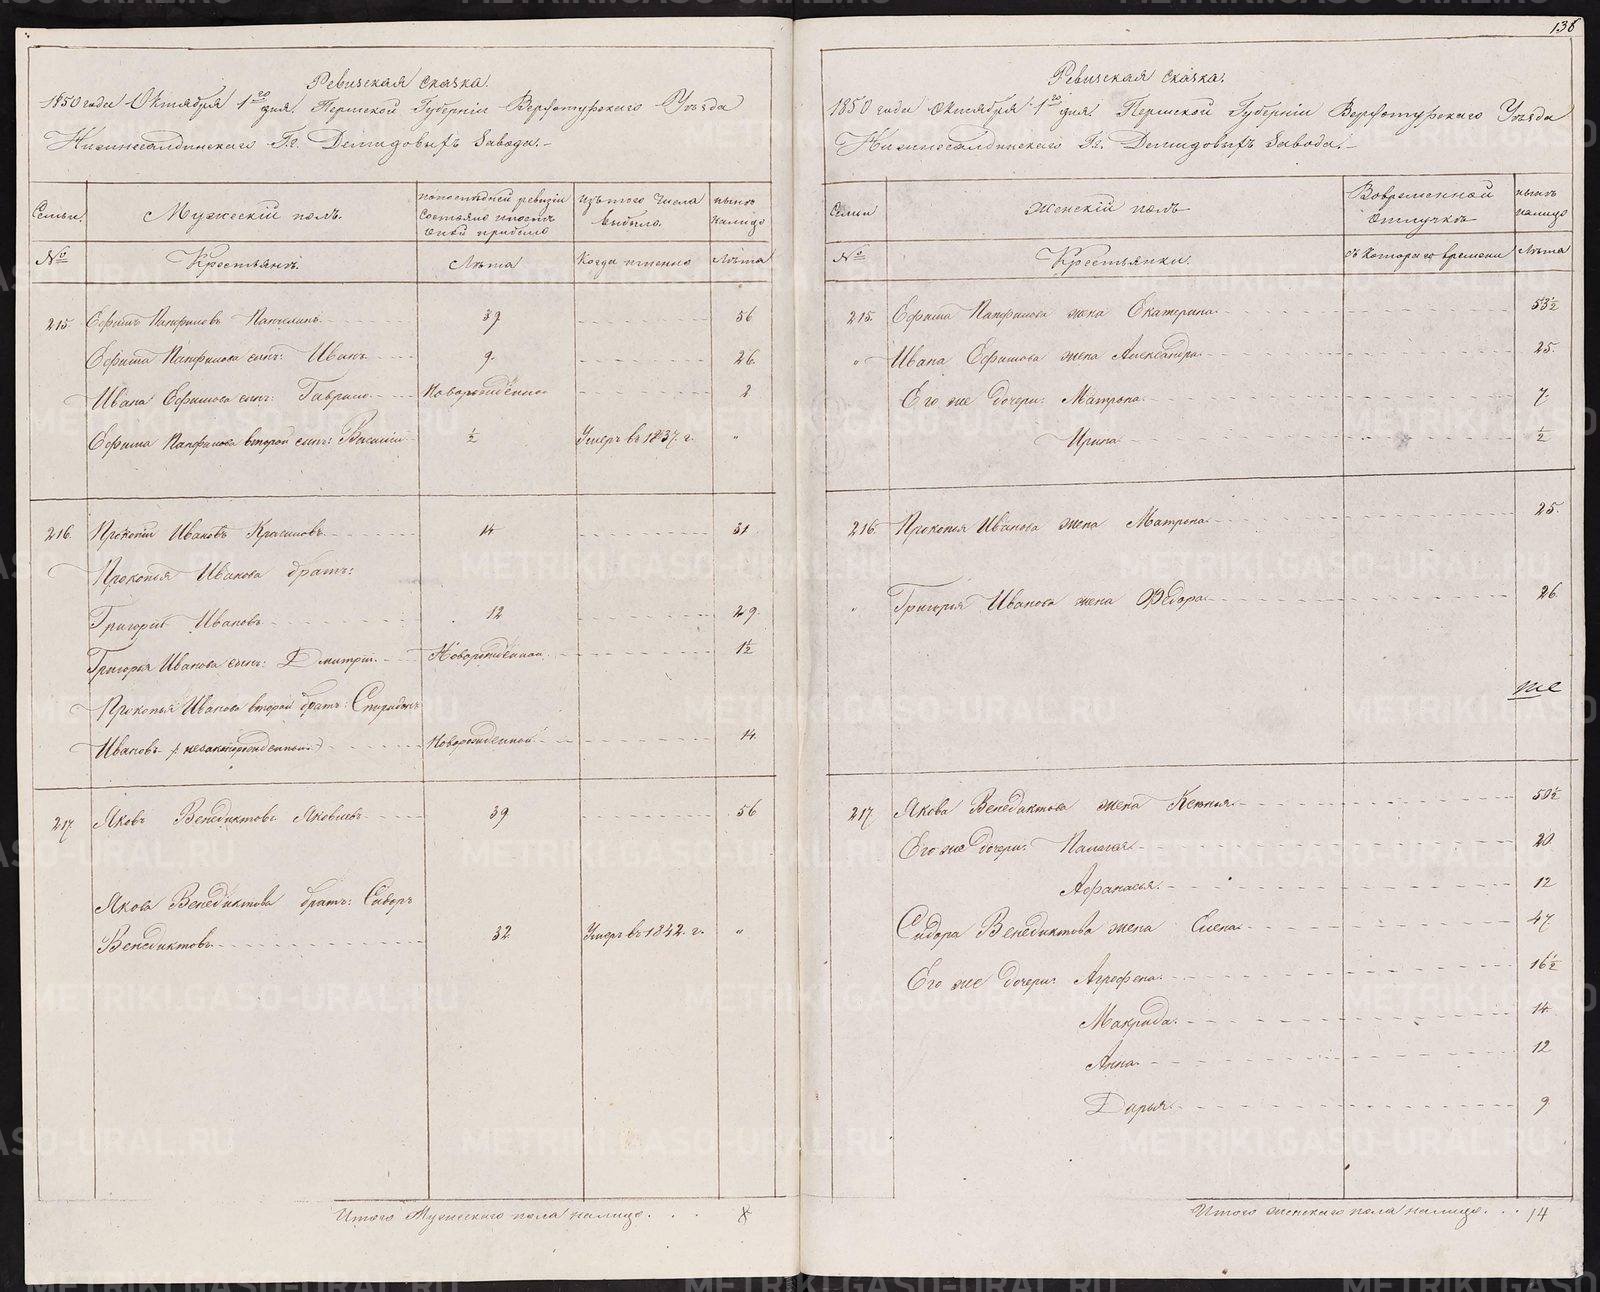 136
Ревизская сказка.
1850 года Октября 1го дня Пермской Губернии Верхотурскаго Уезда
Нижнесалдинскаго Гг. Демидовыхъ Завода.
Семьи.
Мужескій полъ.
по последней ревизіи
состояло и после
оной прибыло
изъ того числа
выбыло.
ныне
налицо
№
Крестьянъ.
Лѣта
Когда именно
Лѣта
215. Ефимъ Панфиловъ 39 56
Ефима Панфилова сынъ: Иванъ 9. 26.
Ивана Ефимова сынъ: Гаврило Новорожденной 2
Ефима Панфилова второй сынъ: Василій ½ Умеръ въ 1837. г. "
216. Прокопій Ивановъ 14 31
Прокопья Иванова братъ:
Григорій Ивановъ 12 29.
Григорья Иванова сынъ: Дмитрій Новорожденной 1½
Прокопья Иванова второй братъ: Спиридонъ
Ивановъ (незаконорожденный) Новорожденной 14
217. Яковъ Венедиктовъ Яковлевъ 39 56
Якова Венедиктова братъ: Сидоръ
Венедиктовъ 32 Умеръ въ 1842. г. "
Итого Мужескаго пола налицо . . . 8
Ревизская сказка.
1850 года Октября 1го дня Пермской Губерніи Верхотурскаго Уезда
Нижнесалдинскаго Гг. Демидовыхъ Завода.
Семьи
Женскій полъ
Во временной
отлучкѣ
ныне
налицо
№
Крестьянки.
съ котораго времени
Лѣта
215. Ефима Панфилова жена Екатерина 53½
" Ивана Ефимова жена Александра 25.
Его же дочери: Матрона 7
Ирина ½
216. Прокопья Иванова жена Матрона 25.
" Григорья Иванова жена Федора 26
те
217. Якова Венедиктова жена Ксенья 50½
Его же дочери: Палагея 20
Афанасья 12
Сидора Венедиктова жена Елена 47
Его же дочери: Агрофена 16½
Макрида 14
Анна 12
Дарья 9
Итого женскаго пола налицо . . . 14
METRIKI.GASO-URAL.RU